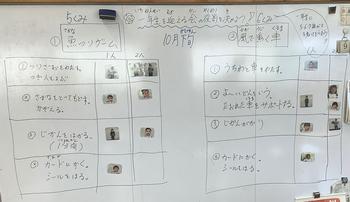 5くみ
一年生を迎える会の役割を決めよう♪5くみ
10月下旬
① 魚つりゲーム
② 風で動く車
1人
2人
1人
2人
①つりざおをわたす。
②さかなをとってもどす。
かぞえる。
③じかんをはかる。
(1分間)
④カードにかく。
シールをはる。
①うちわと車をわたす。
②よーいどんをいう。
たおれた車をサポートする。
③じかんがかり
④カードにかく。
シールをはる。
9